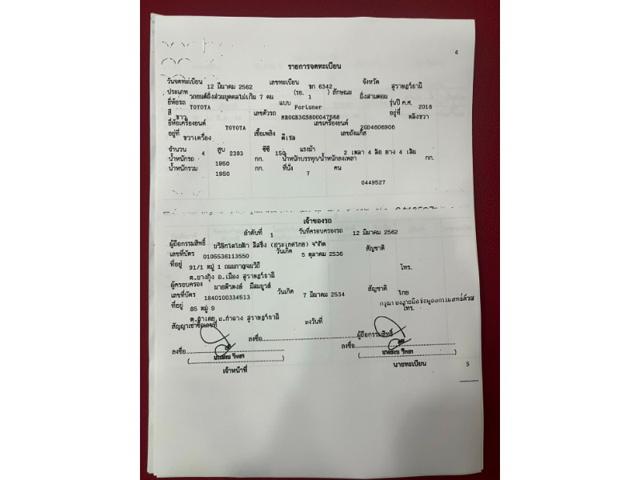 4
รายการจดทะเบียน
วันจดทะเบียน 12 มีนาคม 2562 เลขทะเบียน ขก 6342 จังหวัด สุราษฎร์ธานี
ประเภท รถยนต์นั่งส่วนบุคคลไม่เกิน 7 คน (รย. 1) ลักษณะ นั่งสามตอน
ยี่ห้อรถ TOYOTA แบบ Fortuner รุ่นปี ค.ศ. 2018
สี ขาว เลขตัวรถ อยู่ที่ หลังขวา
ยี่ห้อเครื่องยนต์ TOYOTA เลขเครื่องยนต์ 2GD4606906
อยู่ที่ ขวาเครื่อง เชื้อเพลิง ดีเซล เลขถังแก๊ส
จำนวน 4 สูบ 2393 ซีซี 150 แรงม้า 2 เพลา 4 ล้อ ยาง 4 เส้น
น้ำหนักรถ 1950 กก. น้ำหนักบรรทุก/น้ำหนักลงเพลา กก.
น้ำหนักรวม 1950 กก. ที่นั่ง 7 คน
0449527
เจ้าของรถ
ลำดับที่ 1 วันที่ครอบครองรถ 12 มีนาคม 2562
ผู้ถือกรรมสิทธิ์ บริษัทโตโยต้า ลีสซิ่ง (ประเทศไทย) จำกัด
เลขที่บัตร 0105536113550 วันเกิด 5 ตุลาคม 2536 สัญชาติ
ที่อยู่ 91/1 หมู่ 1 ถนนกาญจนวิถี โทร.
ต.บางกุ้ง อ.เมือง สุราษฎร์ธานี
ผู้ครอบครอง
เลขที่บัตร 1840100334513 วันเกิด 7 มีนาคม 2534 สัญชาติ ไทย
ที่อยู่ 85 หมู่ 9 โทร.
สัญญาเช่าซื้อเลขที่ ลงวันที่ ผู้ถือกรรมสิทธิ์
ลงชื่อ ลงชื่อ
เจ้าหน้าที่ นายทะเบียน
5